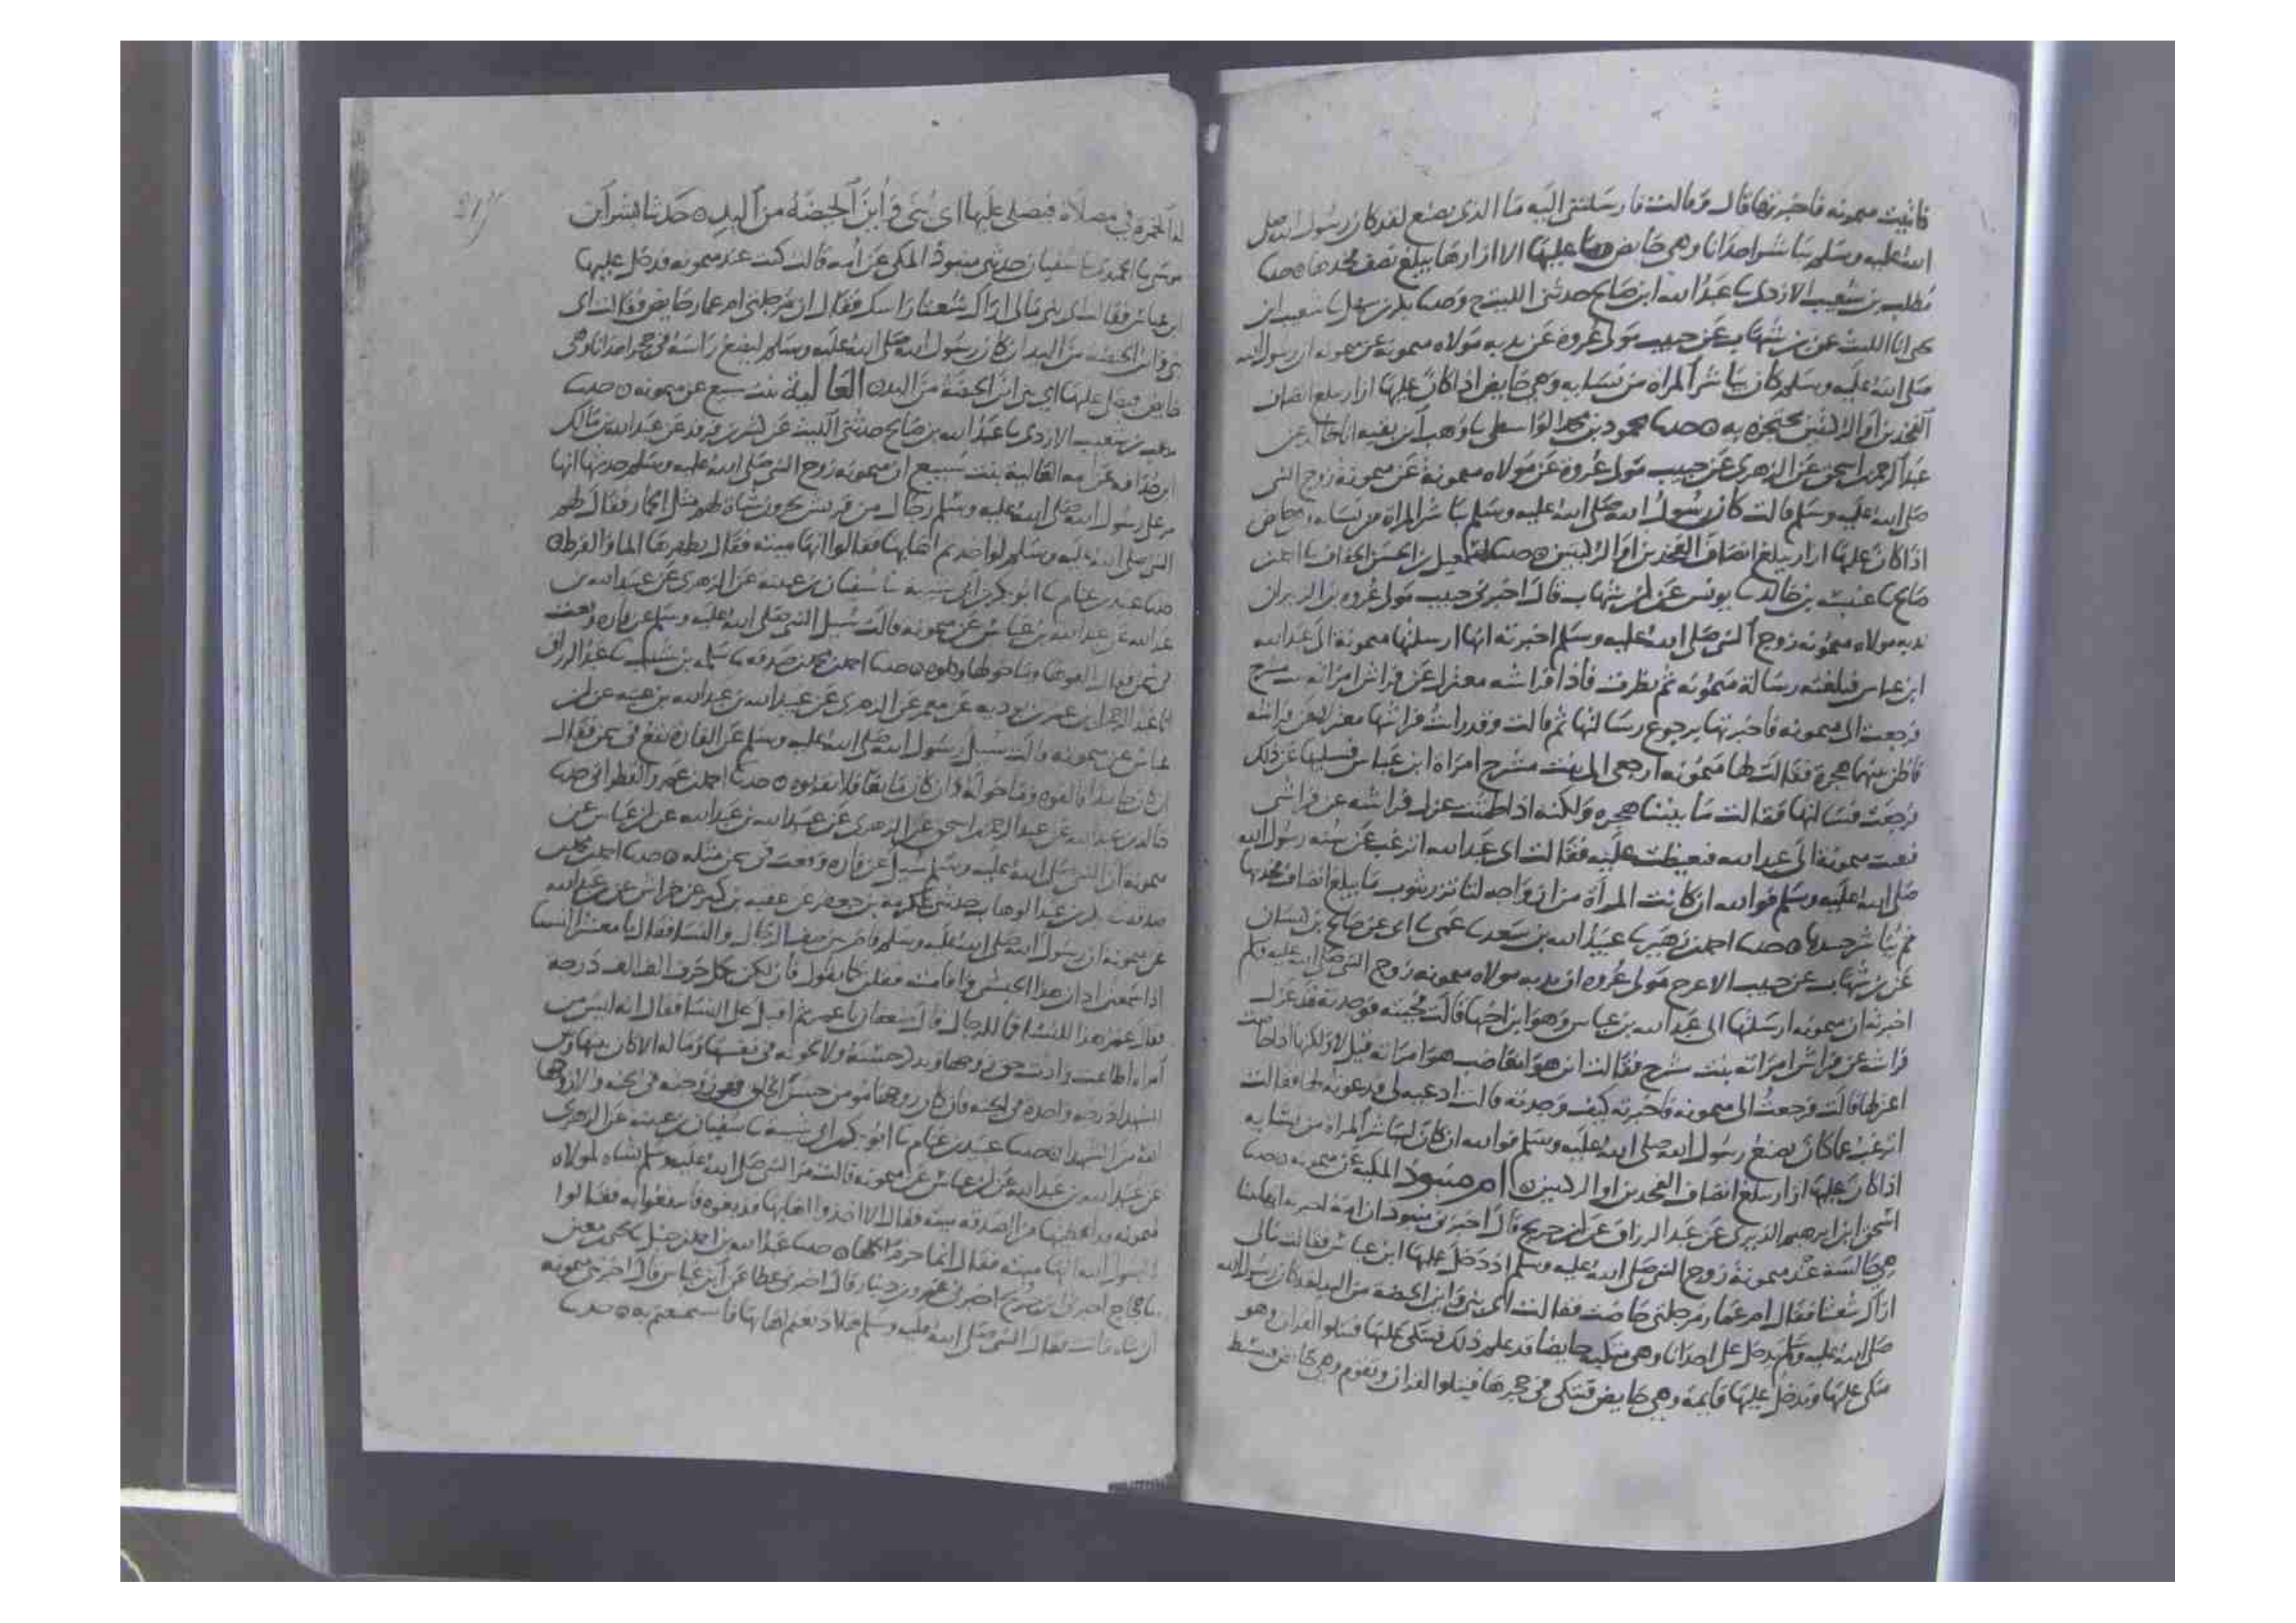 فاتيت ميمونه فاخبرتها قال وقالت فارسلتني اليه ما الذي يصنع لقد كان رسول الله صلى
الله عليه وسلم يباشر احدانا وهي حايض وما عليها الا ازارها يبلغ نصف فخدها ه حدثنا
مطلب بن شعيب الازدي ثنا عبد الله ابن صالح حدثني الليث ح وحدثنا بكر بن سهل ثنا شعيب ابن
يحيى انا الليث عن بن شهاب عن حبيب مولى عروة عن ندبه مولاه ميمونة عن ميمونه ان رسول الله
صلى الله عليه وسلم كان يباشر المراة من نسايه وهي حايض اذا كان عليها ازار يبلغ انصاف
الفخذين او الركبتين محتجزه به ه حدثنا محمود بن محمد الواسطي ثنا وهب ابن بقيه انا خالد عن
عبد الرحمن اسحق عن الزهري عن حبيب مولى عروة عن مولاه ميمونة عن ميمونة زوج النبي
صلى الله عليه وسلم قالت كان رسول الله صلى الله عليه وسلم يباشر المراة من نسايه وهي حايض
اذا كان عليها ازار يبلغ انصاف الفخدين او الركبتين ه حدثنا اسمعيل بن الحسن الخفاف ثنا احمد بن
صالح ثنا عنبسة بن خالد ثنا يونس عن ابن شهاب قال اخبرني حبيب مولى عروه بن الزبير ان
ندبه مولاه ميمونه زوج النبي صلى الله عليه وسلم اخبرته انها ارسلتها ميمونة الى عبد الله
ابن عباس فبلغته رسالة ميمونه ثم نظرت فاذا فراشه معتزلا عن فراش امراته بنت مشرح
فرجعت الى ميمونه فاخبرتها برجوع رسالتها ثم قالت وقد رايت فراشها معتزلا عن فراشه
فاظن بينهما هجرة فقالت لها ميمونه ارجعي الى بنت مشرح امراة ابن عباس فسليها عن ذلك
فرجعت فسالتها فقالت ما بيننا هجره ولكنه اذا طمثت عزل فراشه عن فراشي
فبعثت ميمونة الى عبد الله فتغيظت عليه فقالت اي عبد الله اترغب عن سنه رسول الله
صلى الله عليه وسلم فوالله ان كانت المرأة من ازواجه لتاتزر بثوب ما يبلغ انصاف فخذيها
ثم يباشر جسدها ه حدثنا احمد بن زهير ثنا عبيد الله بن سعد ثنا عمي ثنا ابي عن صالح بن كيسان
عن بن شهاب عن حبيب الاعرج مولى عروه ان ندبه مولاه ميمونه زوج النبي صلى الله عليه وسلم
اخبرته ان ميمونه ارسلتها الى عبد الله بن عباس وهو ابن اختها قالت فجيته فوجدته قد عزل
فراشه عن فراش امراته بنت سرح فقالت اين هو اتغاضب هو امراته قيل لا ولكنها اذا حاضت
اعزلها قالت فرجعت الى ميمونه فاخبرته كيف وجدته قالت ادعيه لي فدعوته لها فقالت
اترغب عما كان يصنع رسول الله صلى الله عليه وسلم فوالله ان كان ليباشر المراة من نسايه
اذا كان عليها ازار يبلغ انصاف الفخدين او الركبتين ه ام منبوذ المكية عن ميمونه ه حدثنا
اسحق ابن ابرهيم الدبري عن عبد الرزاق عن ابن جريج قال اخبرني منبوذ ان امه اخبرته انها بينا
هي جالسة عند ميمونة زوج النبي صلى الله عليه وسلم اذ دخل عليها ابن عباس فقالت مالي
اراك شعثا فقال ام عمار مرجلتي حاضت فقالت اي بني واين الحيضة من اليد لقد كان رسول الله
صلى الله عليه وسلم يدخل على احدانا وهي متكية حايضا قد علم ذلك فيتكي عليها فيتلوا القران وهو
متكي عليها ويدخل عليها قايمة وهي حايض فيتكي في حجرها فيتلوا القران وتقوم وهي حايض فتبسط
له الخمرة في مصلاه فيصلي عليها اي بني واين الحيضة من اليد ه حدثنا بشر ابن
موسى ثنا الحميدي ثنا سفيان حدثني منبوذ المكي عن امه قالت كنت عند ميمونه فدخل عليها
ابن عباس فقالت اي بني مالي اراك شعثا راسك فقال ان مرجلتي ام عمار حايض فقالت اي
بني واين الحيضه من اليد ان كان رسول الله صلى الله عليه وسلم ليضع راسه في حجر احدانا وهي
حايض فيصلي عليها اي بني اين الحيضة من اليد ه العالية بنت سبيع عن ميمونه ه حدثنا
مطلب بن شعيب الازدي ثنا عبد الله بن صالح حدثني الليث عن كثير بن فرقد عن عبد الله بن مالك
ابن حذافه عن امه العالية بنت سبيع ان ميمونه زوج النبي صلى الله عليه وسلم حدثتها انها
مر على رسول الله صلى الله عليه وسلم رجال من قريش يجرون شاة لهم مثل الحمار فقال لهم
النبي صلى الله عليه وسلم لو اخدتم اهابها فقالوا انها ميته فقال يطهرها الما والقرظ ه
حدثنا عبيد بن غنام ثنا ابو بكر بن ابي شيبة ثنا سفيان بن عيينة عن الزهري عن عبيد الله بن
عبد الله عن عبد الله بن عباس عن ميمونه قالت سيل النبي صلى الله عليه وسلم عن فاره وقعت
في سمن فقال القوها وما حولها وكلوه ه حدثنا احمد بن محمد بن صدقه ثنا سلمه بن شبيب ثنا عبد الرزاق
انا عبد الرحمن بن عمر بن بوديه عن معمر عن الزهري عن عبيد الله بن عبد الله بن عتبه عن ابن
عباس عن ميمونه قالت سيل رسول الله صلى الله عليه وسلم عن الفارة تقع في سمن فقال
ان كان جامدا فالقوه وما حوله وان كان مايعا فلا تقربوه ه حدثنا احمد بن عمرو القطراني حدثنا
خالد بن عبد الله عن عبد الرحمن اسحق عن الزهري عن عبيد الله بن عبد الله عن ابن عباس عن
ميمونه ان النبي صلى الله عليه وسلم سيل عن فاره وقعت في سمن مثله ه حدثنا احمد بن محمد بن
صدقه عبد الوهاب حدثني بن جعفر عن عقبه بن كبير عن خراش عن بن عبد الله
عن ميمونه ان رسول الله صلى الله عليه وسلم قام بين صف الرجال والنسا فقال يا معشر النسا
اذا سمعتن اذان هذا الحبشي واقامته فقلن كما يقول فان لكن بكل حرف الف الف درجة
فقال عمر هذا للنسا فما للرجال قال ضعفان يا عمر ثم اقبل على النسا فقال انه ليس من
امراه اطاعت وادت حق زوجها وتذكر حسنه ولا تخونه في نفسها وماله الا كان بينها وبين
الشهدا درجه واحده في الجنه فان كان زوجها مومن حسن الخلق فهي زوجته في الجنه والا زوجها
الله من الشهدا ه حدثنا عبيد بن غنام ثنا ابو بكر بن ابي شيبه ثنا سفيان بن عيينه عن الزهري
عن عبيد الله بن عبد الله عن ابن عباس عن ميمونه قالت مر النبي صلى الله عليه وسلم بشاه لمولاه
لميمونه قد اعطيتها من الصدقه ميته فقال الا اخذوا اهابها فدبغوه فانتفعوا به فقالوا
يا رسول الله انها ميته فقال انما حرم اكلها ه حدثنا عبد الله بن احمد بن حنبل ثنا يحيى بن معين
ثنا حجاج اخبرني ابن جريج اخبرني عمرو بن دينار قال اخبرني عطا عن ابن عباس قال اخبرتني ميمونه
ان شاه ماتت فقال النبي صلى الله عليه وسلم هلا دبغتم اهابها فاستمتعتم به ه حدثنا